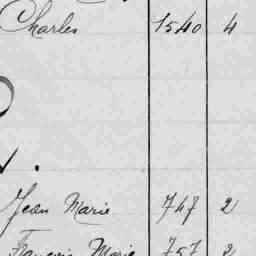 Charles 1540 4
Jean Marie 747 2
François Marie 757 2